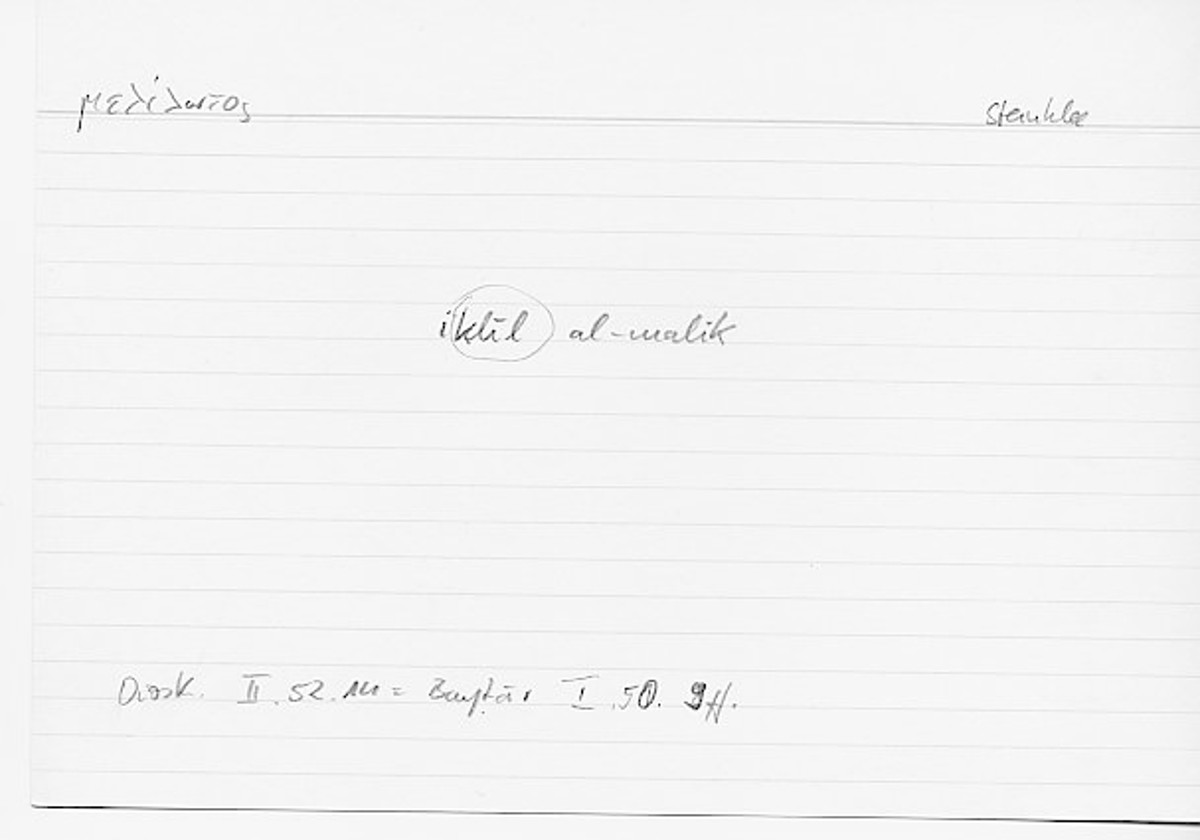 μελίλωτος Steinklee
iklīl al-malik
Diosk. II. 52. 111 = Bayṭār I. 50. 9ff.